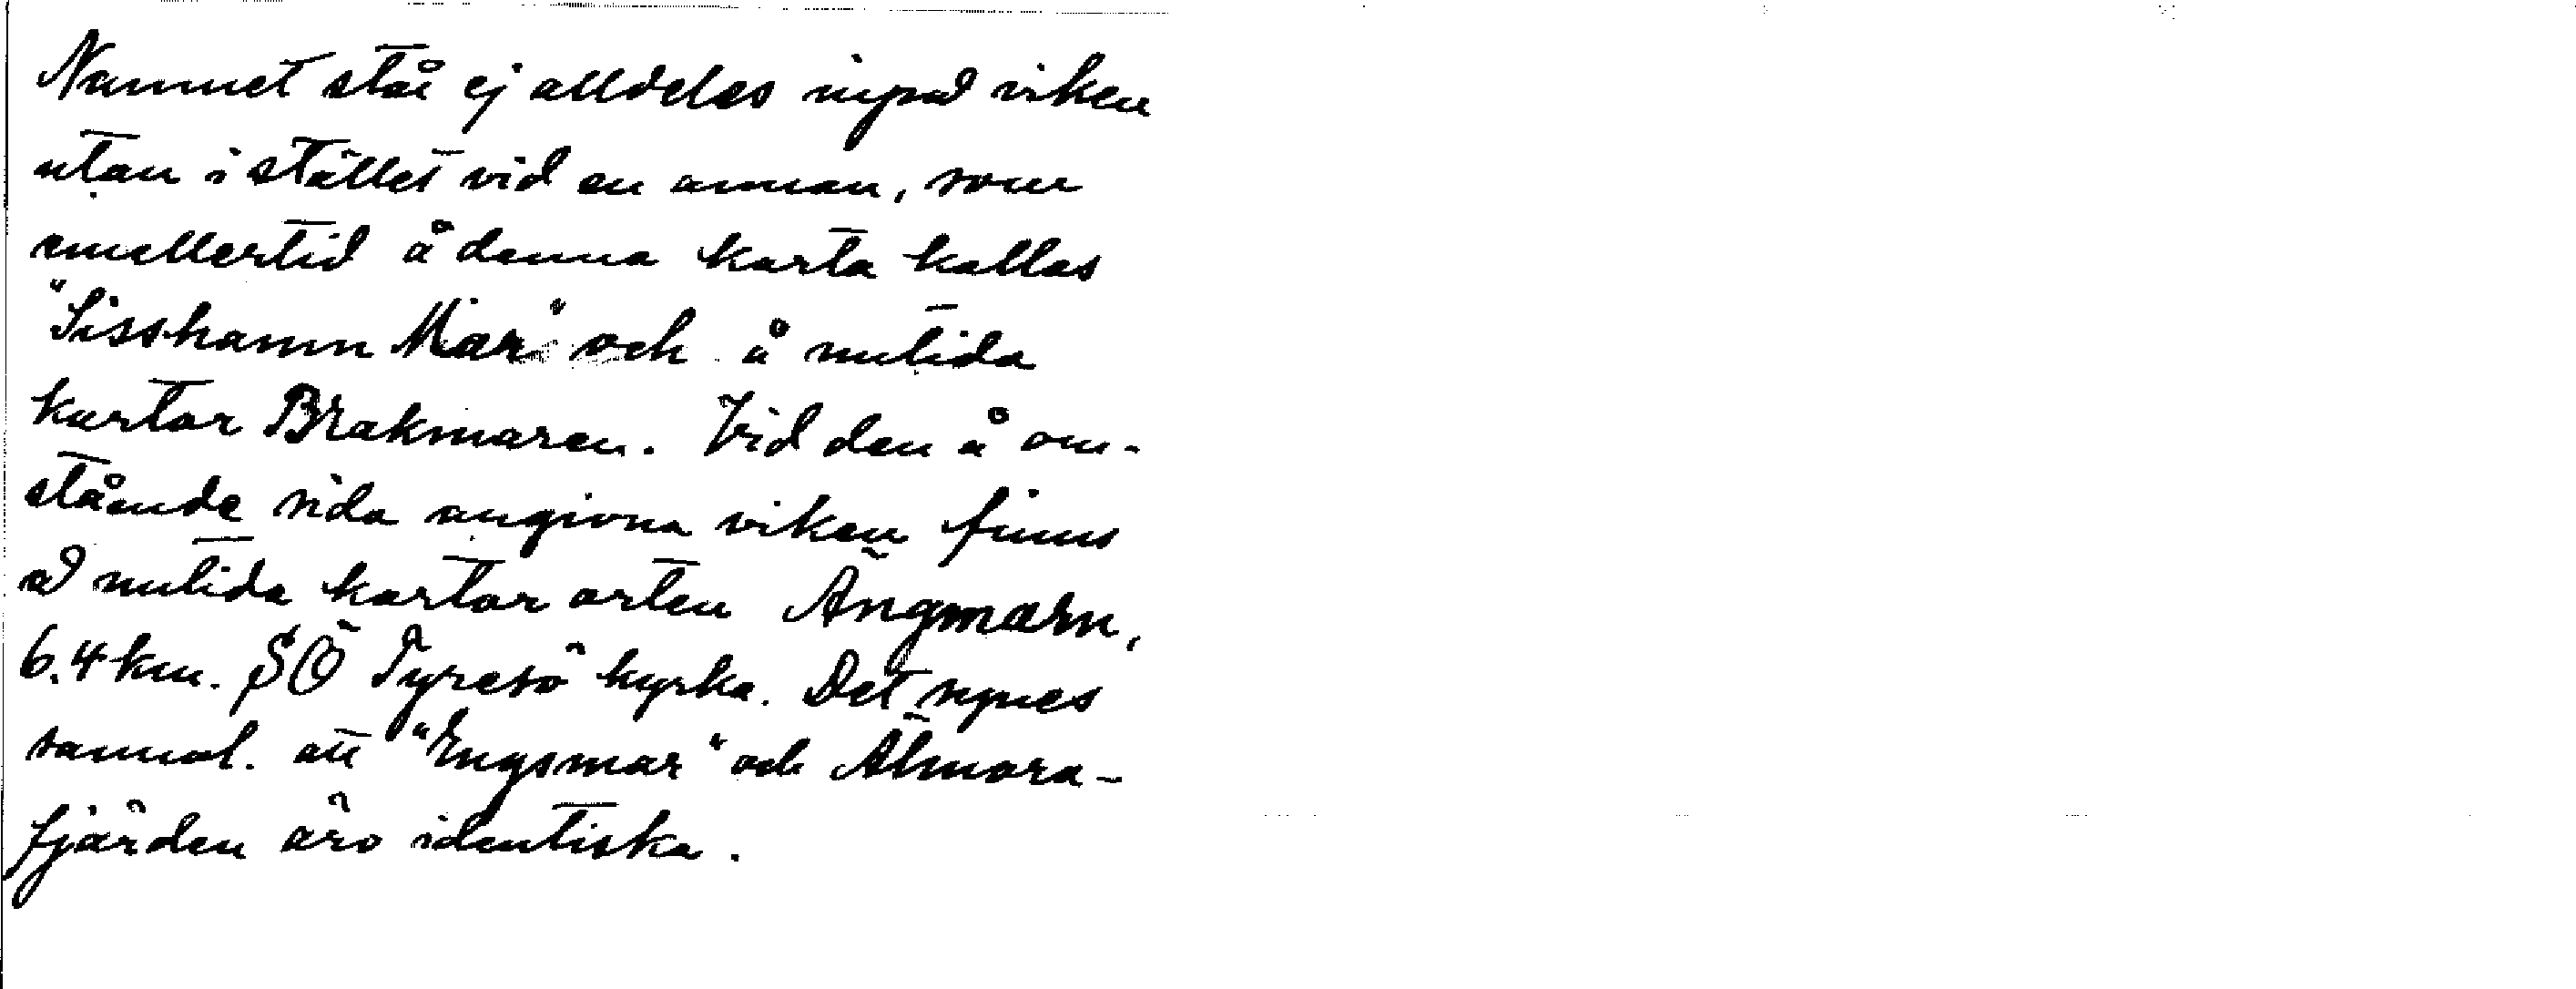 Namnet står ej alldeles inpå viken
utan i stället vid en annan, som
emellertid å denna karta kallas
"Sisshamn Mar" och å nutida
kartor Brakmaren. Vid den å om-
stående sida angivna viken finns
å nutida kartor orten Ängmarn,
6.4 km. SÖ Tyresö kyrka. Det synes
sannol. att "Engsmar" och Älmora-
fjärden äro identiska.